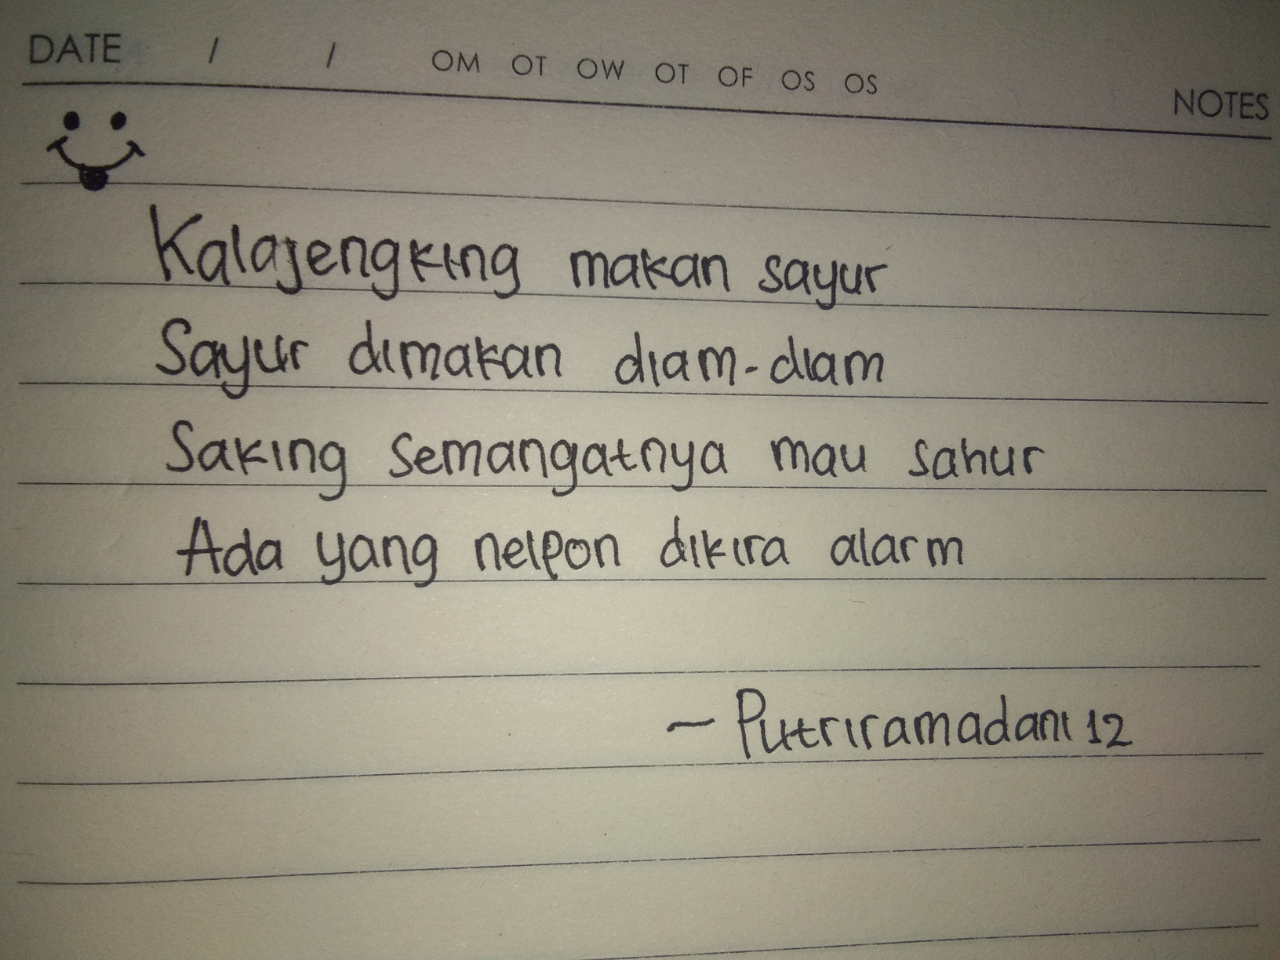 DATE / / OM OT OW OT OF OS OS
NOTES
Kalajengking makan sayur
Sayur dimakan diam-diam
Saking semangatnya mau sahur
Ada yang nelpon dikira alarm
~ Putriramadani12